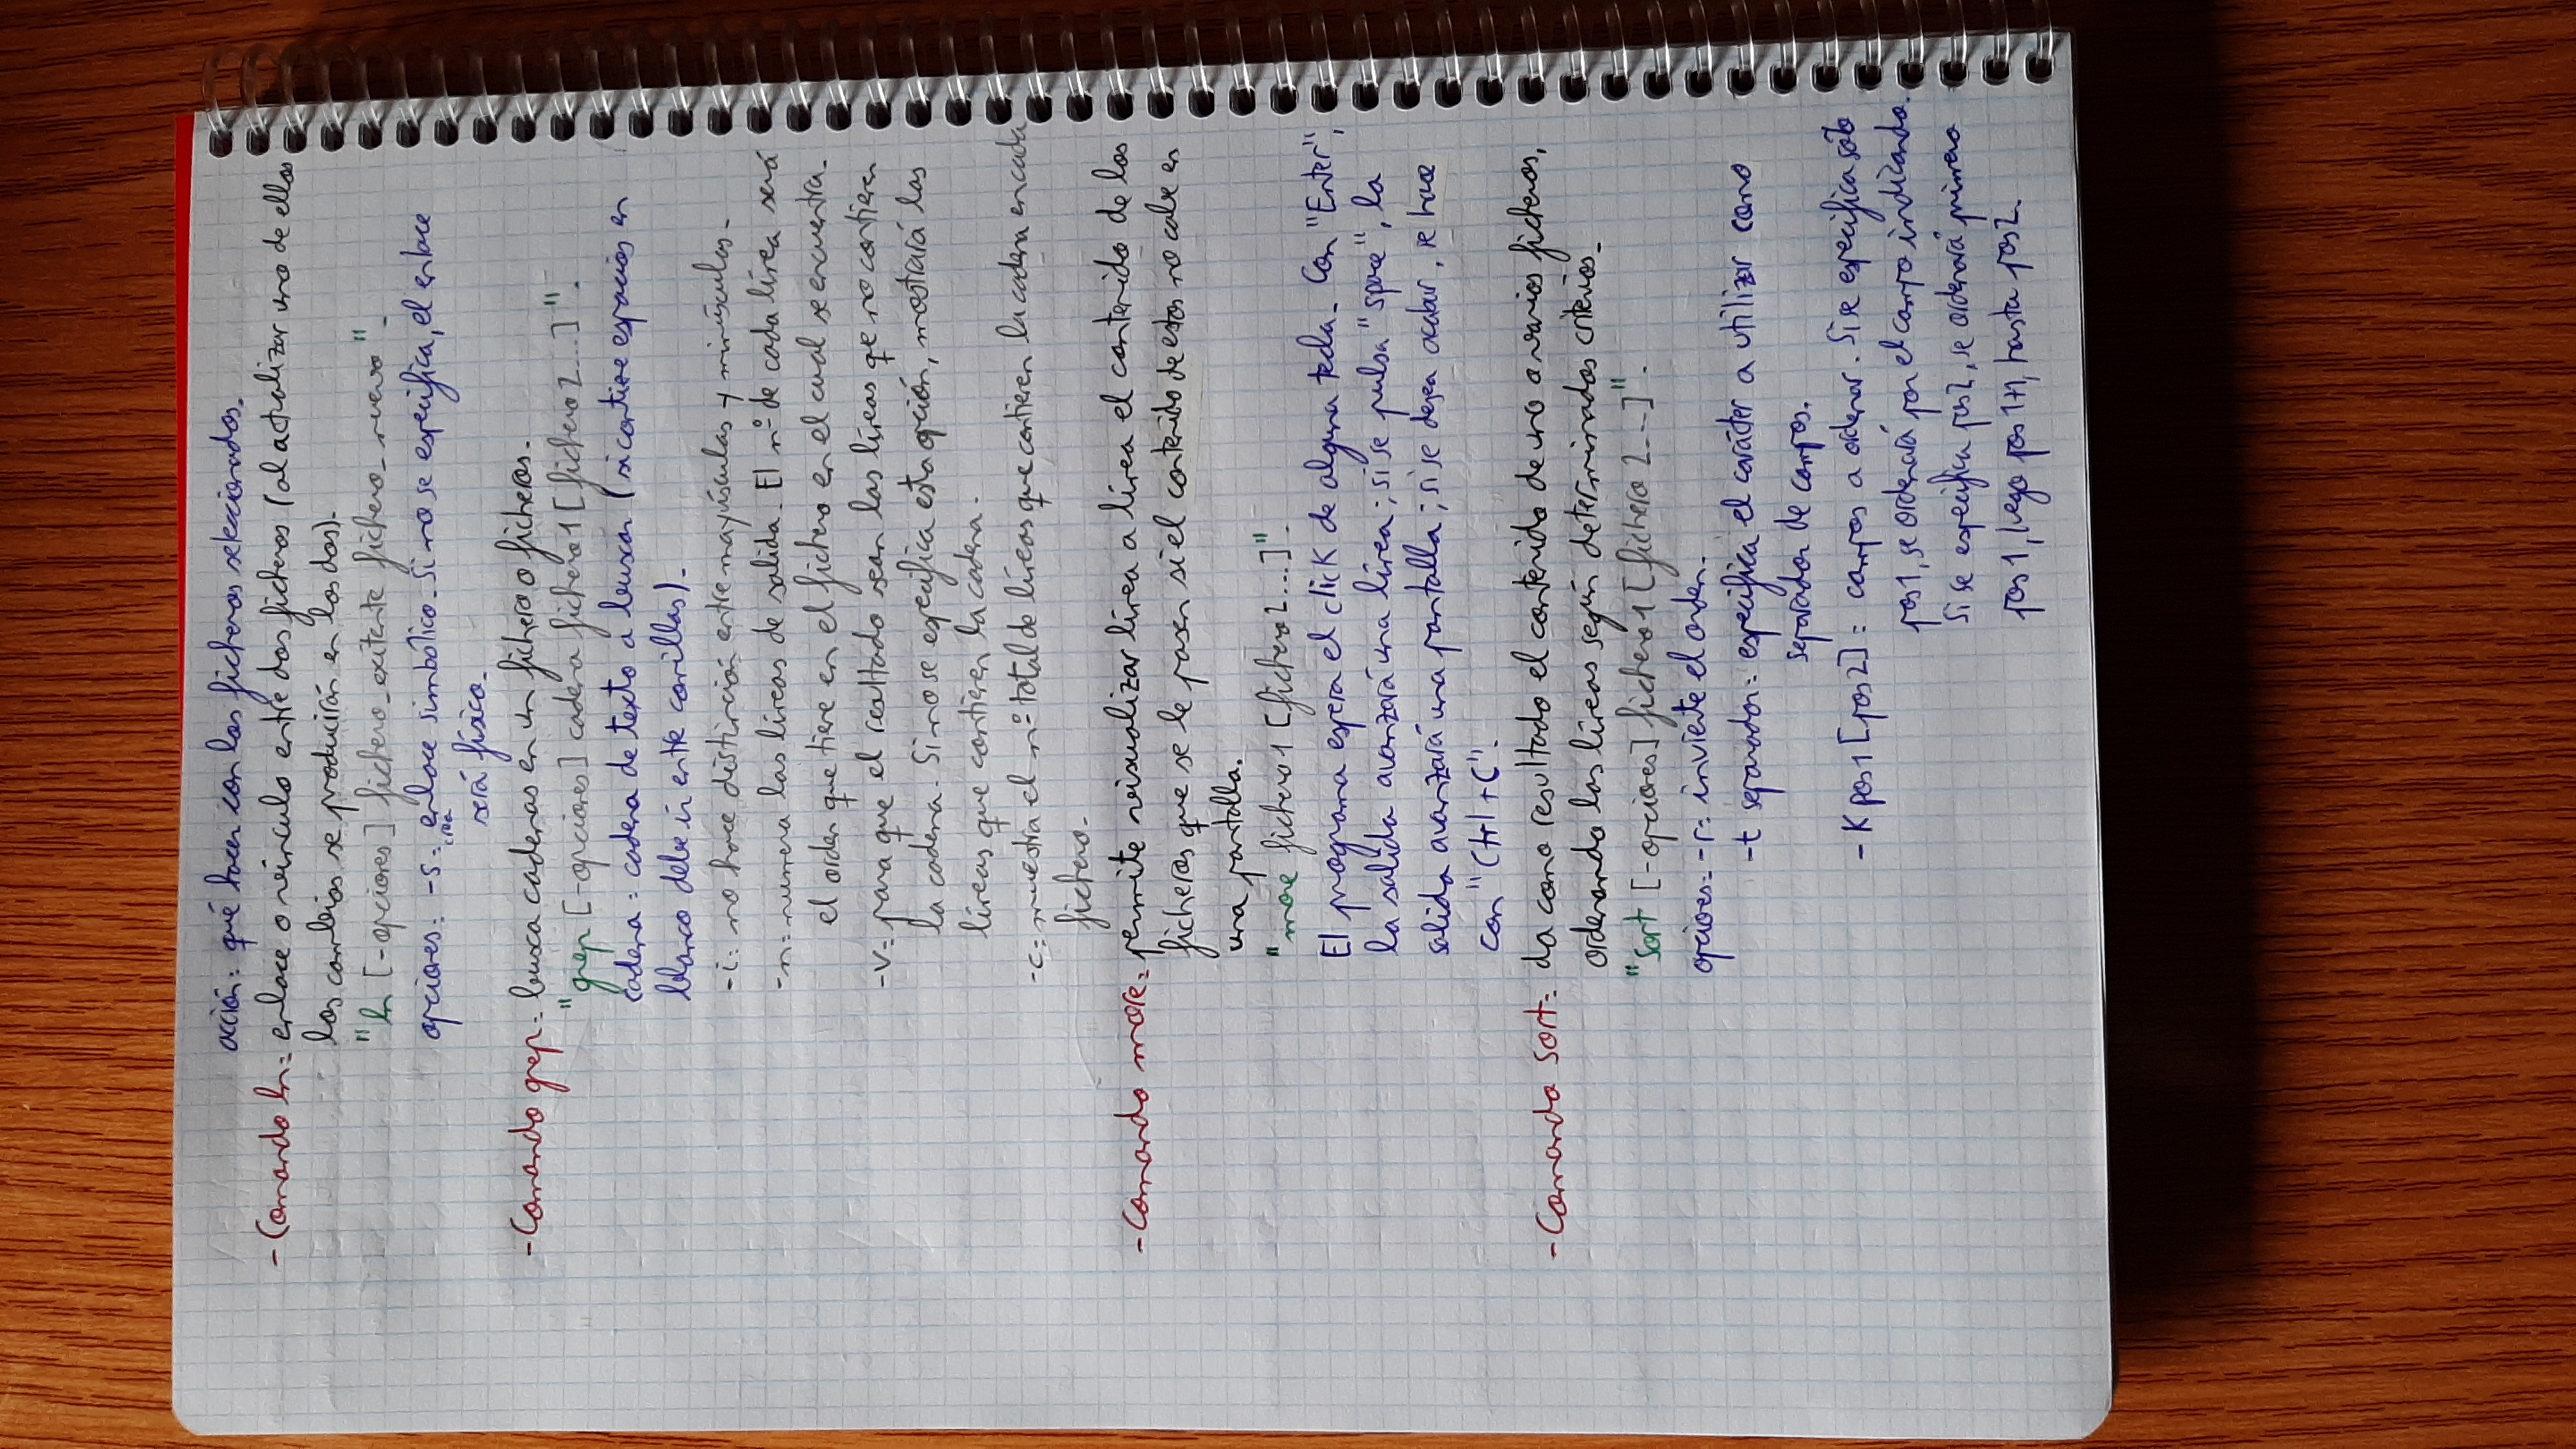 acción: qué hacer con los ficheros seleccionados.
- Comando ln: enlace o vínculo entre dos ficheros (al actualizar uno de ellos
los cambios se producirán en los dos).
"ln [-opciones] fichero_exitente fichero_nuevo".
opciones: -s: crea enlace simbólico. Si no se especifica, el enlace
será físico.
- Comando grep: busca cadenas en un fichero o ficheros.
"grep [-opciones] cadena fichero1 [fichero2...]".
cadena: cadena de texto a buscar (si contiene espacios en
blanco debe ir entre comillas).
-i: no hace distinción entre mayúsculas y minúsculas.
-n: numera las líneas de salida. El nº de cada línea será
el orden que tiene en el fichero en el cual se encuentra.
-v: para que el resultado sean las líneas qe no contienen
la cadena. Si no se especifica esta opción, mostrará las
líneas que contienen la cadena.
-c: muestra el nº total de líneas que contienen la cadena en cada
fichero.
- Comando more: permite visualizar línea a línea el contenido de los
ficheros que se le pasen si el contenido de estos no cabe en
una pantalla.
"more fichero1 [fichero2...]".
El programa espera el click de alguna tecla. Con "Enter",
la salida avanzará una línea; si se pulsa "space", la
salida avanzará una pantalla; si se desea acabar, se hace
con "Ctrl+C".
- Comando sort: da como resultado el contenido de uno o varios ficheros,
ordenando las líneas según determinados criterios.
"sort [-opciones] fichero1 [fichero2...]".
opciones: -r: invierte el orden.
-t separador: especifica el carácter a utilizar como
separador de campos.
-K pos1 [pos2]: campos a ordenar. Si se especifica sólo
pos1, se ordenará por el campo indicando.
Si se especifica pos2, se ordenará primero
pos1, luego pos1+1, hasta pos2.